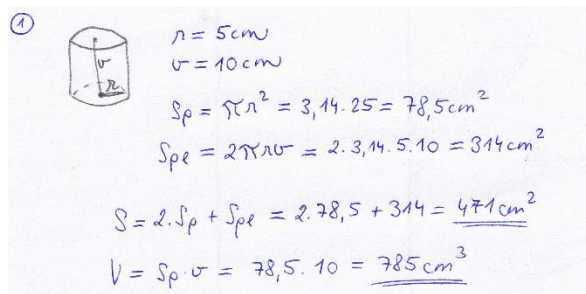 1
r = 5cm
v = 10cm
v
r
Sp = πr² = 3,14·25 = 78,5cm²
Spl = 2πrv = 2·3,14·5·10 = 314cm²
S = 2·Sp + Spl = 2·78,5 + 314 = 471cm²
V = Sp·v = 78,5·10 = 785cm³